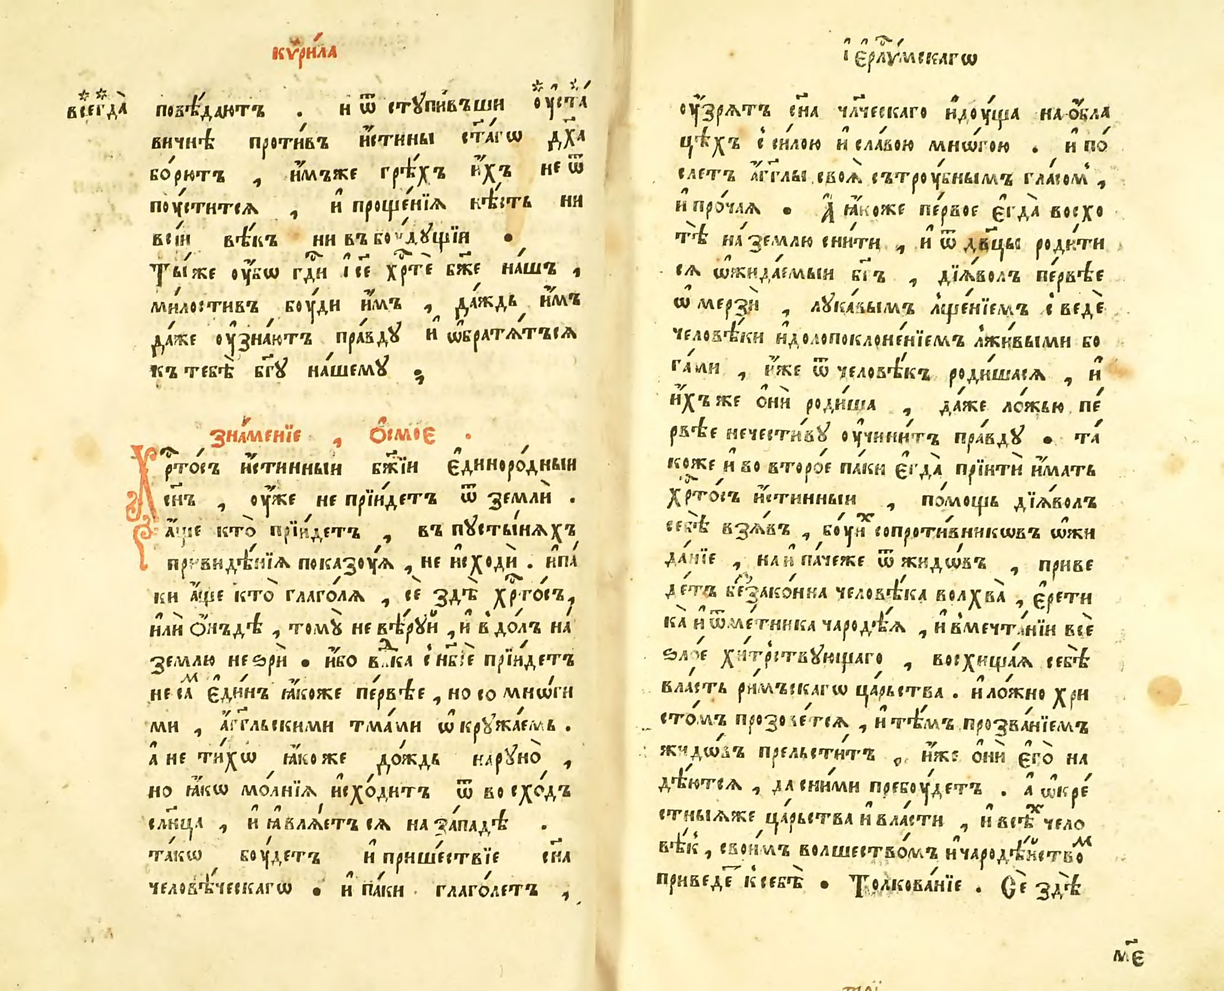 кѵри́ла
всегда̀ повѣ́даютъ . и҆ ѿ стꙋпи́въши ᲂу҆ста́
вичнѣ проти́въ и҆́стины ст҃а́гѡ дх҃а
бо́рютъ , и҆́мъже грѣ́хъ и҆́хъ не ѿ
поу́стится , и҆ проще́нїѧ нѣ́сть ни
всі́и вѣ́къ ни въ боу́дꙋщїи •
Ты́ же ᲂу҆́бѡ гд҃и і҆се҃ хр҇тѐ бж҃е на́шъ ,
ми́лостивъ боу́ди и҆́мъ , да́ждь и҆́мъ
да́же ᲂу҆зна́ютъ пра́вдꙋ и҆ ѡ҆братѧ́тъсѧ
къ тебѣ̀ бг҃ꙋ на́шемꙋ ;
зна́менїе , ѻ҆смо́е .
Хр҇то́съ и҆́стинныи бж҃їи є҆диноро́дныи
сн҃ъ , ᲂу҆́же не прїи́детъ ѿ землѝ .
а҆́ще кто̀ прїи́детъ , въ пꙋсты́нѧхъ
привидѣ́нїѧ показоу́ѧ , не и҆сходѝ . и҆па́
ки а҆́ще кто̀ глаго́лѧ , сѐ здѣ̀ хр҇то́съ ,
и҆лѝ ѻ҆́нъдѣ , томꙋ̀ не вѣ́рꙋй , и҆ в̾до́лъ на́
землю не ꙃрѝ • и҆́бо влⷣка с̾ нб҃сѐ прїи́детъ
не саⷨ є҆ди́нъ ꙗ҆́коже пе́рвѣе , но со мнѡ́ги
ми , а҆́гг҃льскими тма́ми ѡ҆крꙋжа́емь .
а҆ не ти́хѡ ꙗ҆́коже до́ждь нарꙋно̀ ,
но ꙗ҆́кѡ мо́лнїѧ и҆схо́дитъ ѿ восхо́дъ
сл҃нца , и҆ ꙗ҆влѧ́етъ сѧ на за́падѣ .
та́кѡ боу́детъ и҆ прише́ствїе сн҃а
человѣ́ческагѡ • и҆ па́ки глаго́летъ ,
і҆ерⷭ҇лѝмскагѡ
ᲂу҆́зрѧтъ сн҃а чл҃ческаго и҆дꙋ́ща на ѻ҆́бла
цѣхъ с̾ си́лою и҆ сла́вою мнѡ́гою . и҆ по́
слетъ а҆́гг҃лы своѧ̀ сътроу́бнымъ гла́сом̾ ,
и҆ про́чаѧ • А҆ ꙗ҆́коже пе́рвое є҆гда̀ восхо
тѣ̀ на́ землю сни́ти , и҆ ѿ дв҃цы роди́ти
сѧ ѡ҆жида́емыи бг҃ъ , дїѧ́волъ пе́рвѣе
ѡ҆ мерзѝ , лꙋка́вымъ лще́нїемъ с̾ ведѐ
человѣ́ки и҆долопоклоне́нїемъ лжи́выми бо
га́ми , и҆́же ѿ человѣ́къ роди́шасѧ , и҆
и҆́хъ же ѻ҆нѝ роди́ша , да́же ло́жью пе́
рвѣе нечести́вꙋ ᲂу҆чини́тъ пра́вдꙋ • та́
коже и҆ во второ́е па́ки є҆гда̀ прїитѝ и҆́мать
хр҇то́съ и҆́стинныи , по́мощь дїѧ́волъ
себѣ̀ взѧ́въ , боуиⷯ сопроти́вникѡвъ ѡ҆жи
да́нїе , на и҆ па́чеже ѿ жидѡ́въ , приве
де́тъ беззако́нна человѣ́ка волхва̀ , є҆рети
ка̀ и҆ ѿме́тника чародѣ́ѧ , и҆ в̾мечта́нїи все
ꙃло́е хи́трствꙋющаго , восхища́ѧ себѣ̀
вла́сть ри́мъскагѡ ца́рьства . и҆ ло́жно хри
сто́мъ прозове́тсѧ , и҆ тѣ́мъ прозва́нїемъ
жидѡ́въ прельсти́тъ , и҆́же ѻ҆нѝ є҆го̀ на
дѣ́ютсѧ , да сни́ми пребоу́детъ . а҆ ѡ҆кре́
стныѧже ца́рьства и҆ вла́сти , и҆ всѣⷯ чело
вѣ́к , свои́мъ волшество́мъ и҆ чародѣ́йствоⷨ
приведе́т к̾ себѣ̀ • Толкова́нїе . Сѐ здѣ̀
м҃є